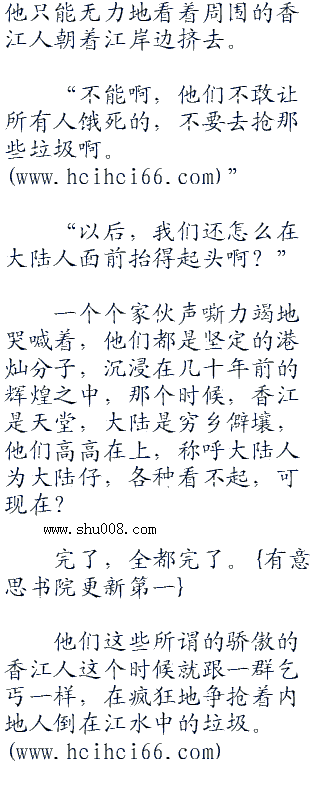 他只能无力地看着周围的香
江人朝着江岸边挤去。
“不能啊，他们不敢让
所有人饿死的，不要去抢那
些垃圾啊。
(www.hcihci66.com)”
“以后，我们还怎么在
大陆人面前抬得起头啊？”
一个个家伙声嘶力竭地
哭喊着，他们都是坚定的港
灿分子，沉浸在几十年前的
辉煌之中，那个时候，香江
是天堂，大陆是穷乡僻壤，
他们高高在上，称呼大陆人
为大陆仔，各种看不起，可
现在？
www.shu008.com
完了，全都完了。{有意
思书院更新第一}
他们这些所谓的骄傲的
香江人这个时候就跟一群乞
丐一样，在疯狂地争抢着内
地人倒在江水中的垃圾。
(www.hcihci66.com)